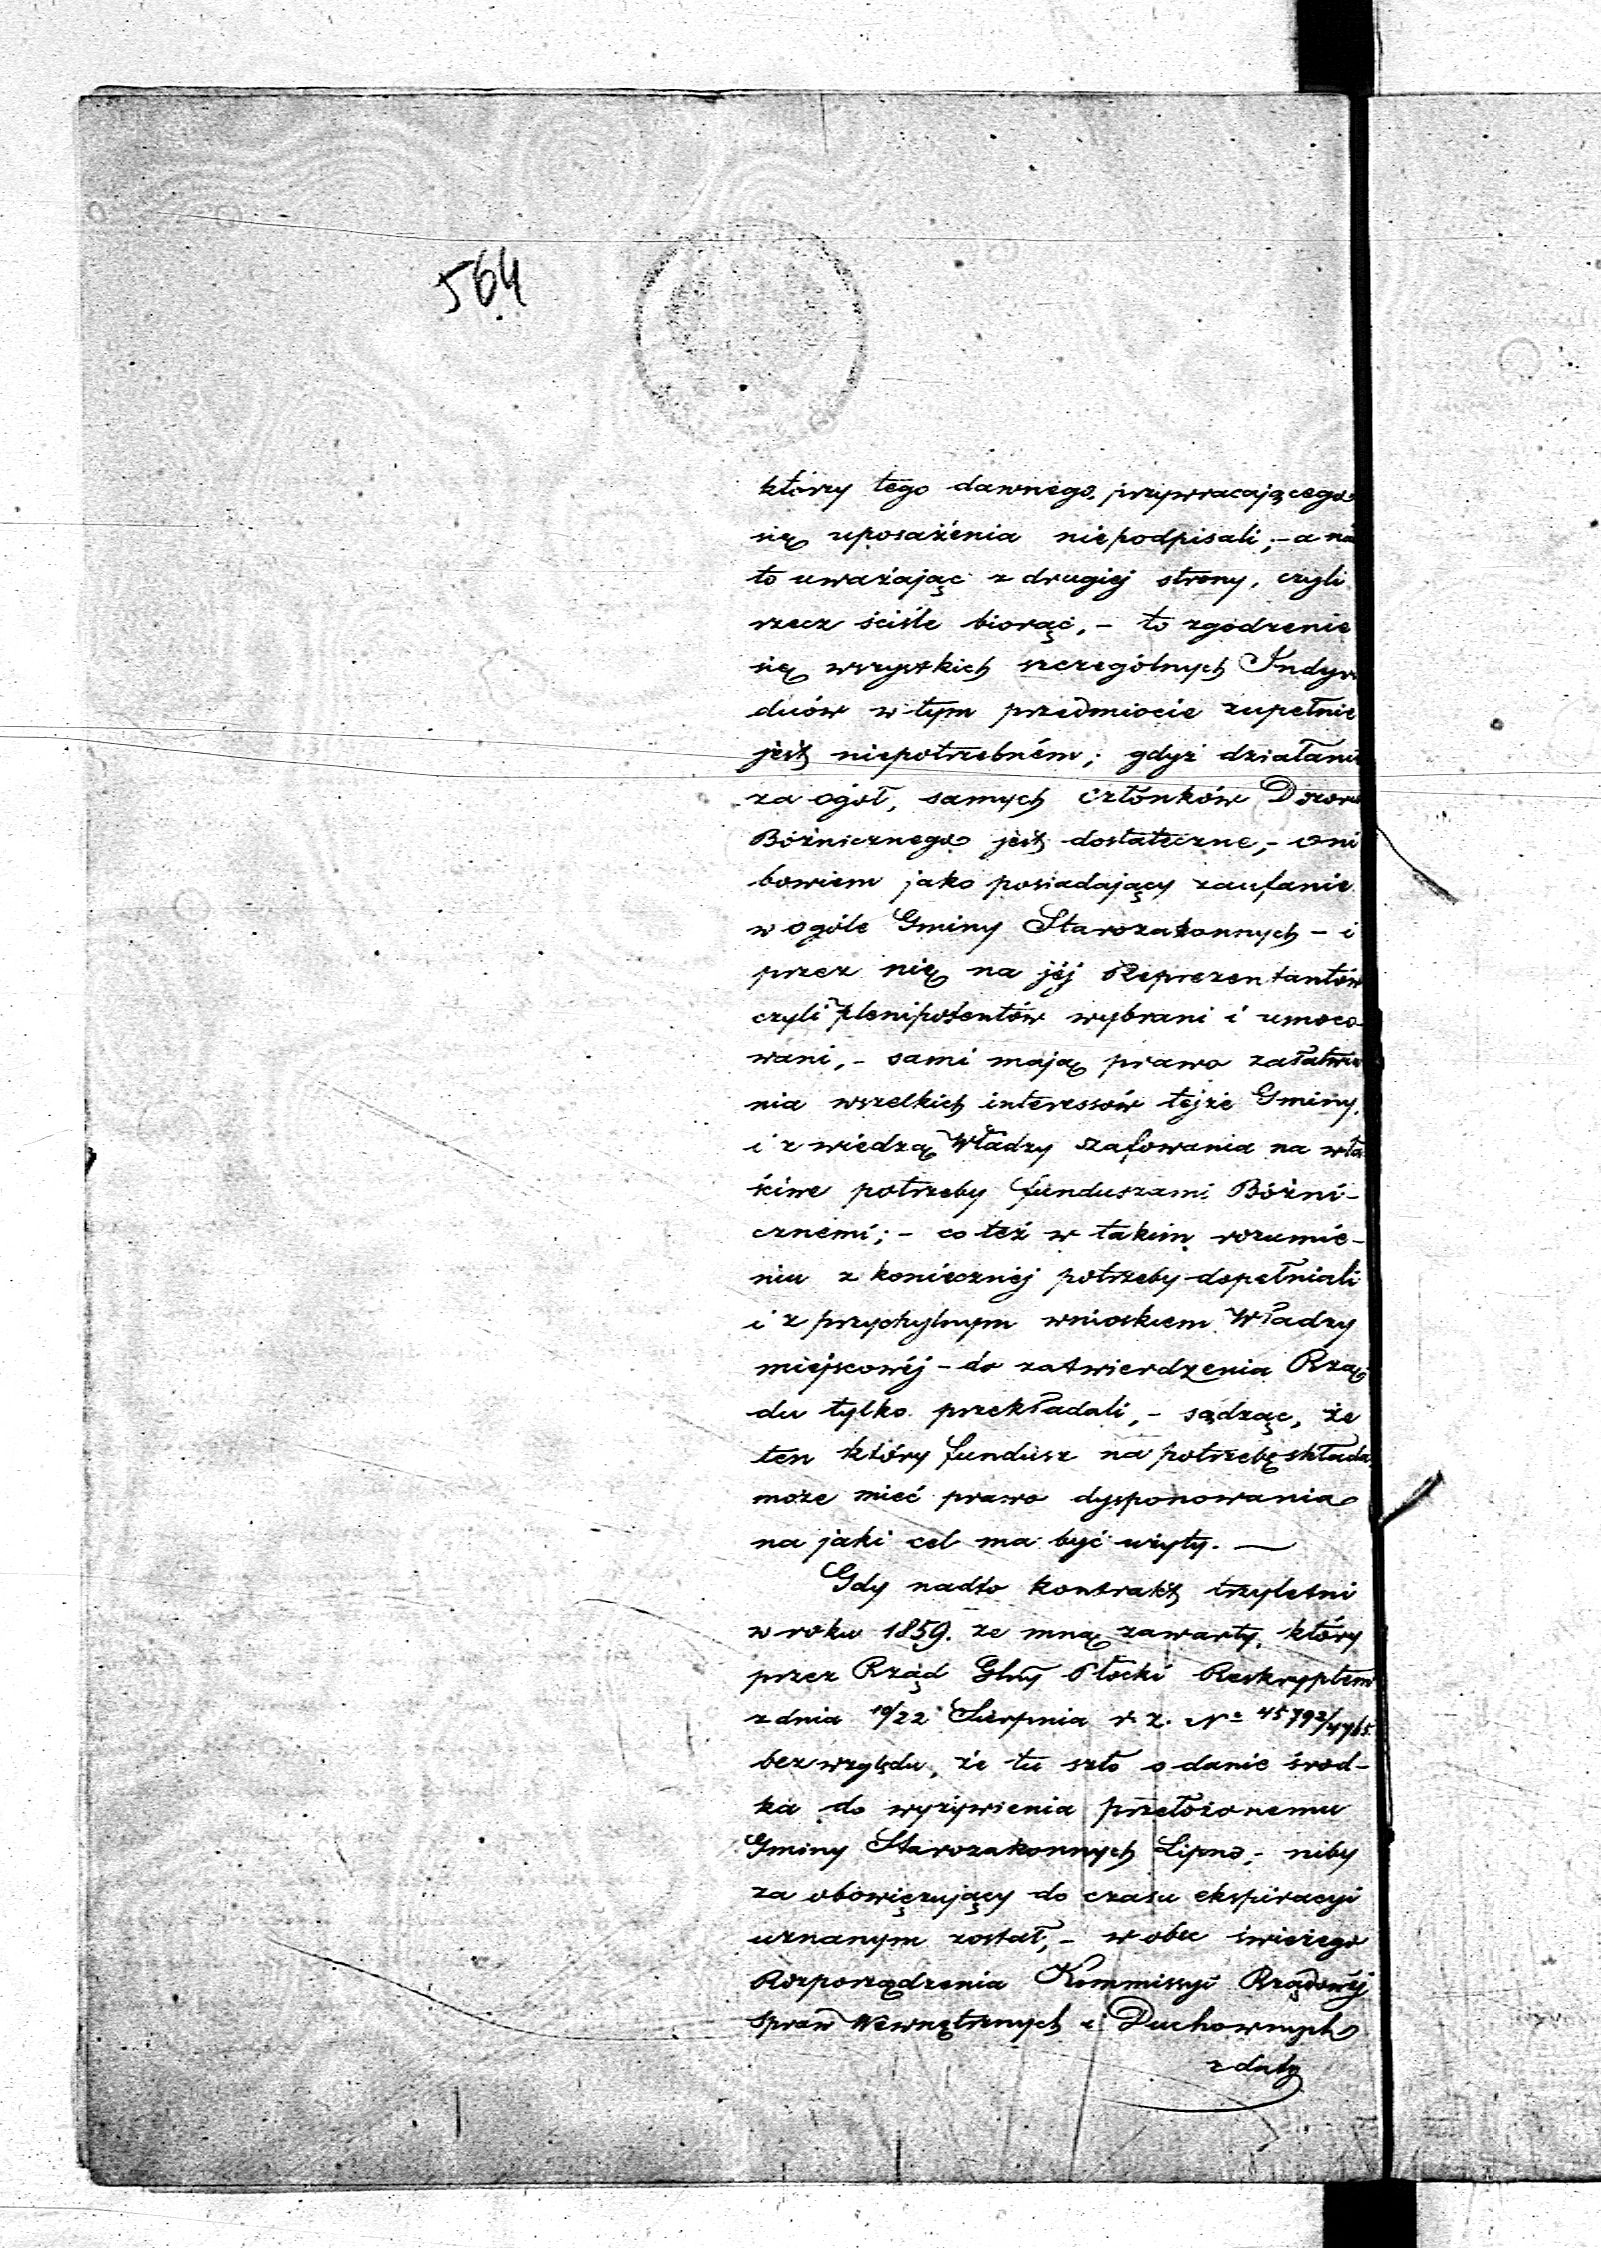 564
którzy tego dawnego, przywracającego
się uposażenia niepodpisali; - a na
to uważając z drugiej strony, czyli
rzecz ściśle biorąc, - to zgodzenie
się wszystkich szczególnych Indywi
duów w tym przedmiocie zupełnie
jest niepotrzebném; gdyż działanie
za ogół, samych członków Dozoru
Bóżnicznego jest dostateczne, - oni
bowiem jako posiadający zaufanie
w ogóle Gminy Starozakonnych - i
przez nię na jéj Reprezentantów
czyli plenipotentów wybrani i umoco
wani, - sami mają prawo załatwie
nia wszelkich interessów téjże Gminy,
i z wiedzą Władzy szafowania na wła
ściwe potrzeby funduszami Bóżni-
cznemi; - co też w takim rozumie-
niu z koniecznéj potrzeby dopełniali
i z przychylnym wnioskiem Władzy
miejscowéj - do zatwierdzenia Rzą
du tylko przekładali, - sądząc, że
ten który fundusz na potrzebę składa,
może mieć prawo dysponowania
na jaki cel ma być użyty. —
Gdy nadto kontrakt trzyletni
w roku 1859. ze mną zawarty, który
przez Rząd Glny Płocki Reskryptem
z dnia 10/22 Sierpnia r. z. No 45792/4765.
bez względu, że tu szło o danie środ-
ka do wyżywienia przełożonemu
Gminy Starozakonnych Lipno, - niby
za obowięzujący do czasu ekspiracyi
uznanym został, - w obec świeżego
Rozporządzenia Kommissyi Rządowéj
Spraw Wewnętrznych i Duchownych
z daty